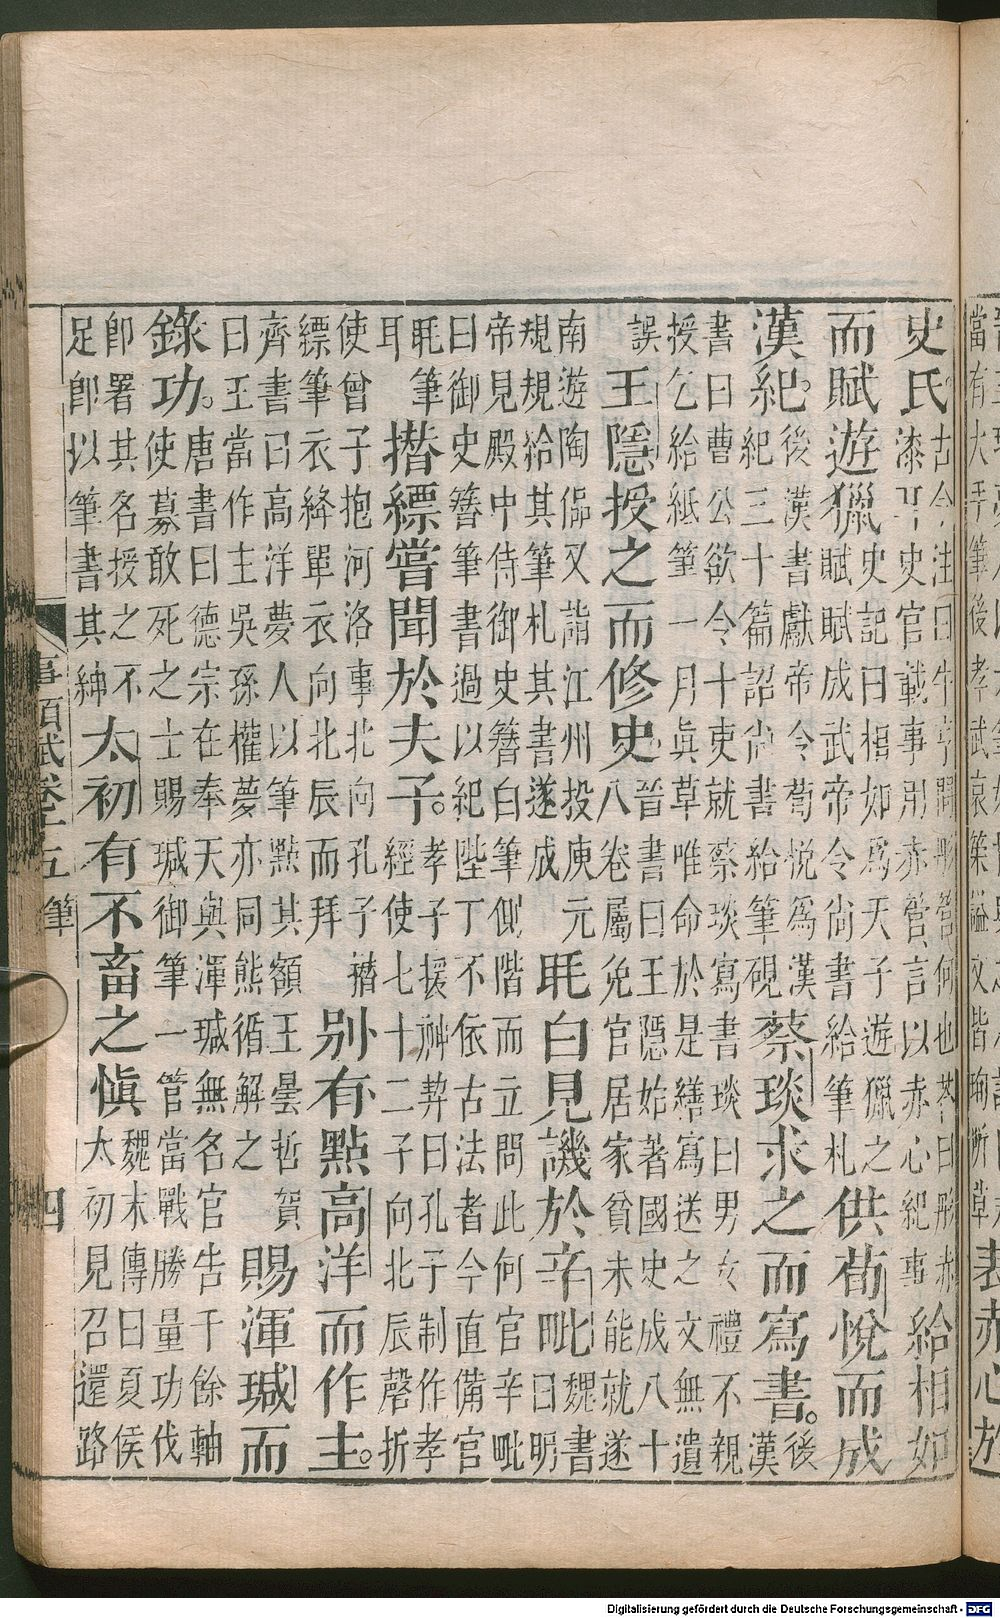 史氏
古今注曰牛亨問彤管何也荅曰彤赤
漆耳史官載事別赤管言以赤心紀事
給相如
而賦遊獵
史記曰相如爲天子遊獵之
賦賦成武帝令尚書給筆札
供荀悅而成
漢紀。
後漢書獻帝令荀悅爲漢
紀三十篇詔尚書給筆硯
蔡琰求之而寫書。
後漢
書曰曹公欲令十吏就蔡琰寫書琰曰男女禮不親
授乞給紙筆一月眞草唯命於是繕寫送之文無遺
誤
王隱授之而修史。
晉書曰王隱始著國史成八十
八卷屬免官居家貧未能就遂
南遊陶侃又詣江州投庾元
規規給其筆札其書遂成
毦白見譏於辛毗
魏書曰明
帝見殿中侍御史簪白筆側階而立問此何官辛毗
曰御史簪筆書過以紀陛丁不依古法者今直備官
毦筆耳
搢縹嘗聞於夫子。
孝子援神契曰孔子制作孝
經使七十二子向北辰磬折
使曾子抱河洛事北向孔子簪
縹筆衣絳單衣向北辰而拜
别有點高洋而作主。
齊書曰高洋夢人以筆點其額王曇哲賀
曰王當作主吳孫權夢亦同熊循解之
賜渾瑊而
錄功。
唐書曰德宗在奉天與渾瑊無名官告千餘軸
使募敢死之士賜瑊御筆一管當戰勝量功伐
卽署其名授之不
足卽以筆書其紳
太初有不畜之愼
魏末傳曰夏侯
太初見召還路
事類賦卷十五 筆 四
表赤心於
Digitalisierung gefördert durch die Deutsche Forschungsgemeinschaft - DFG